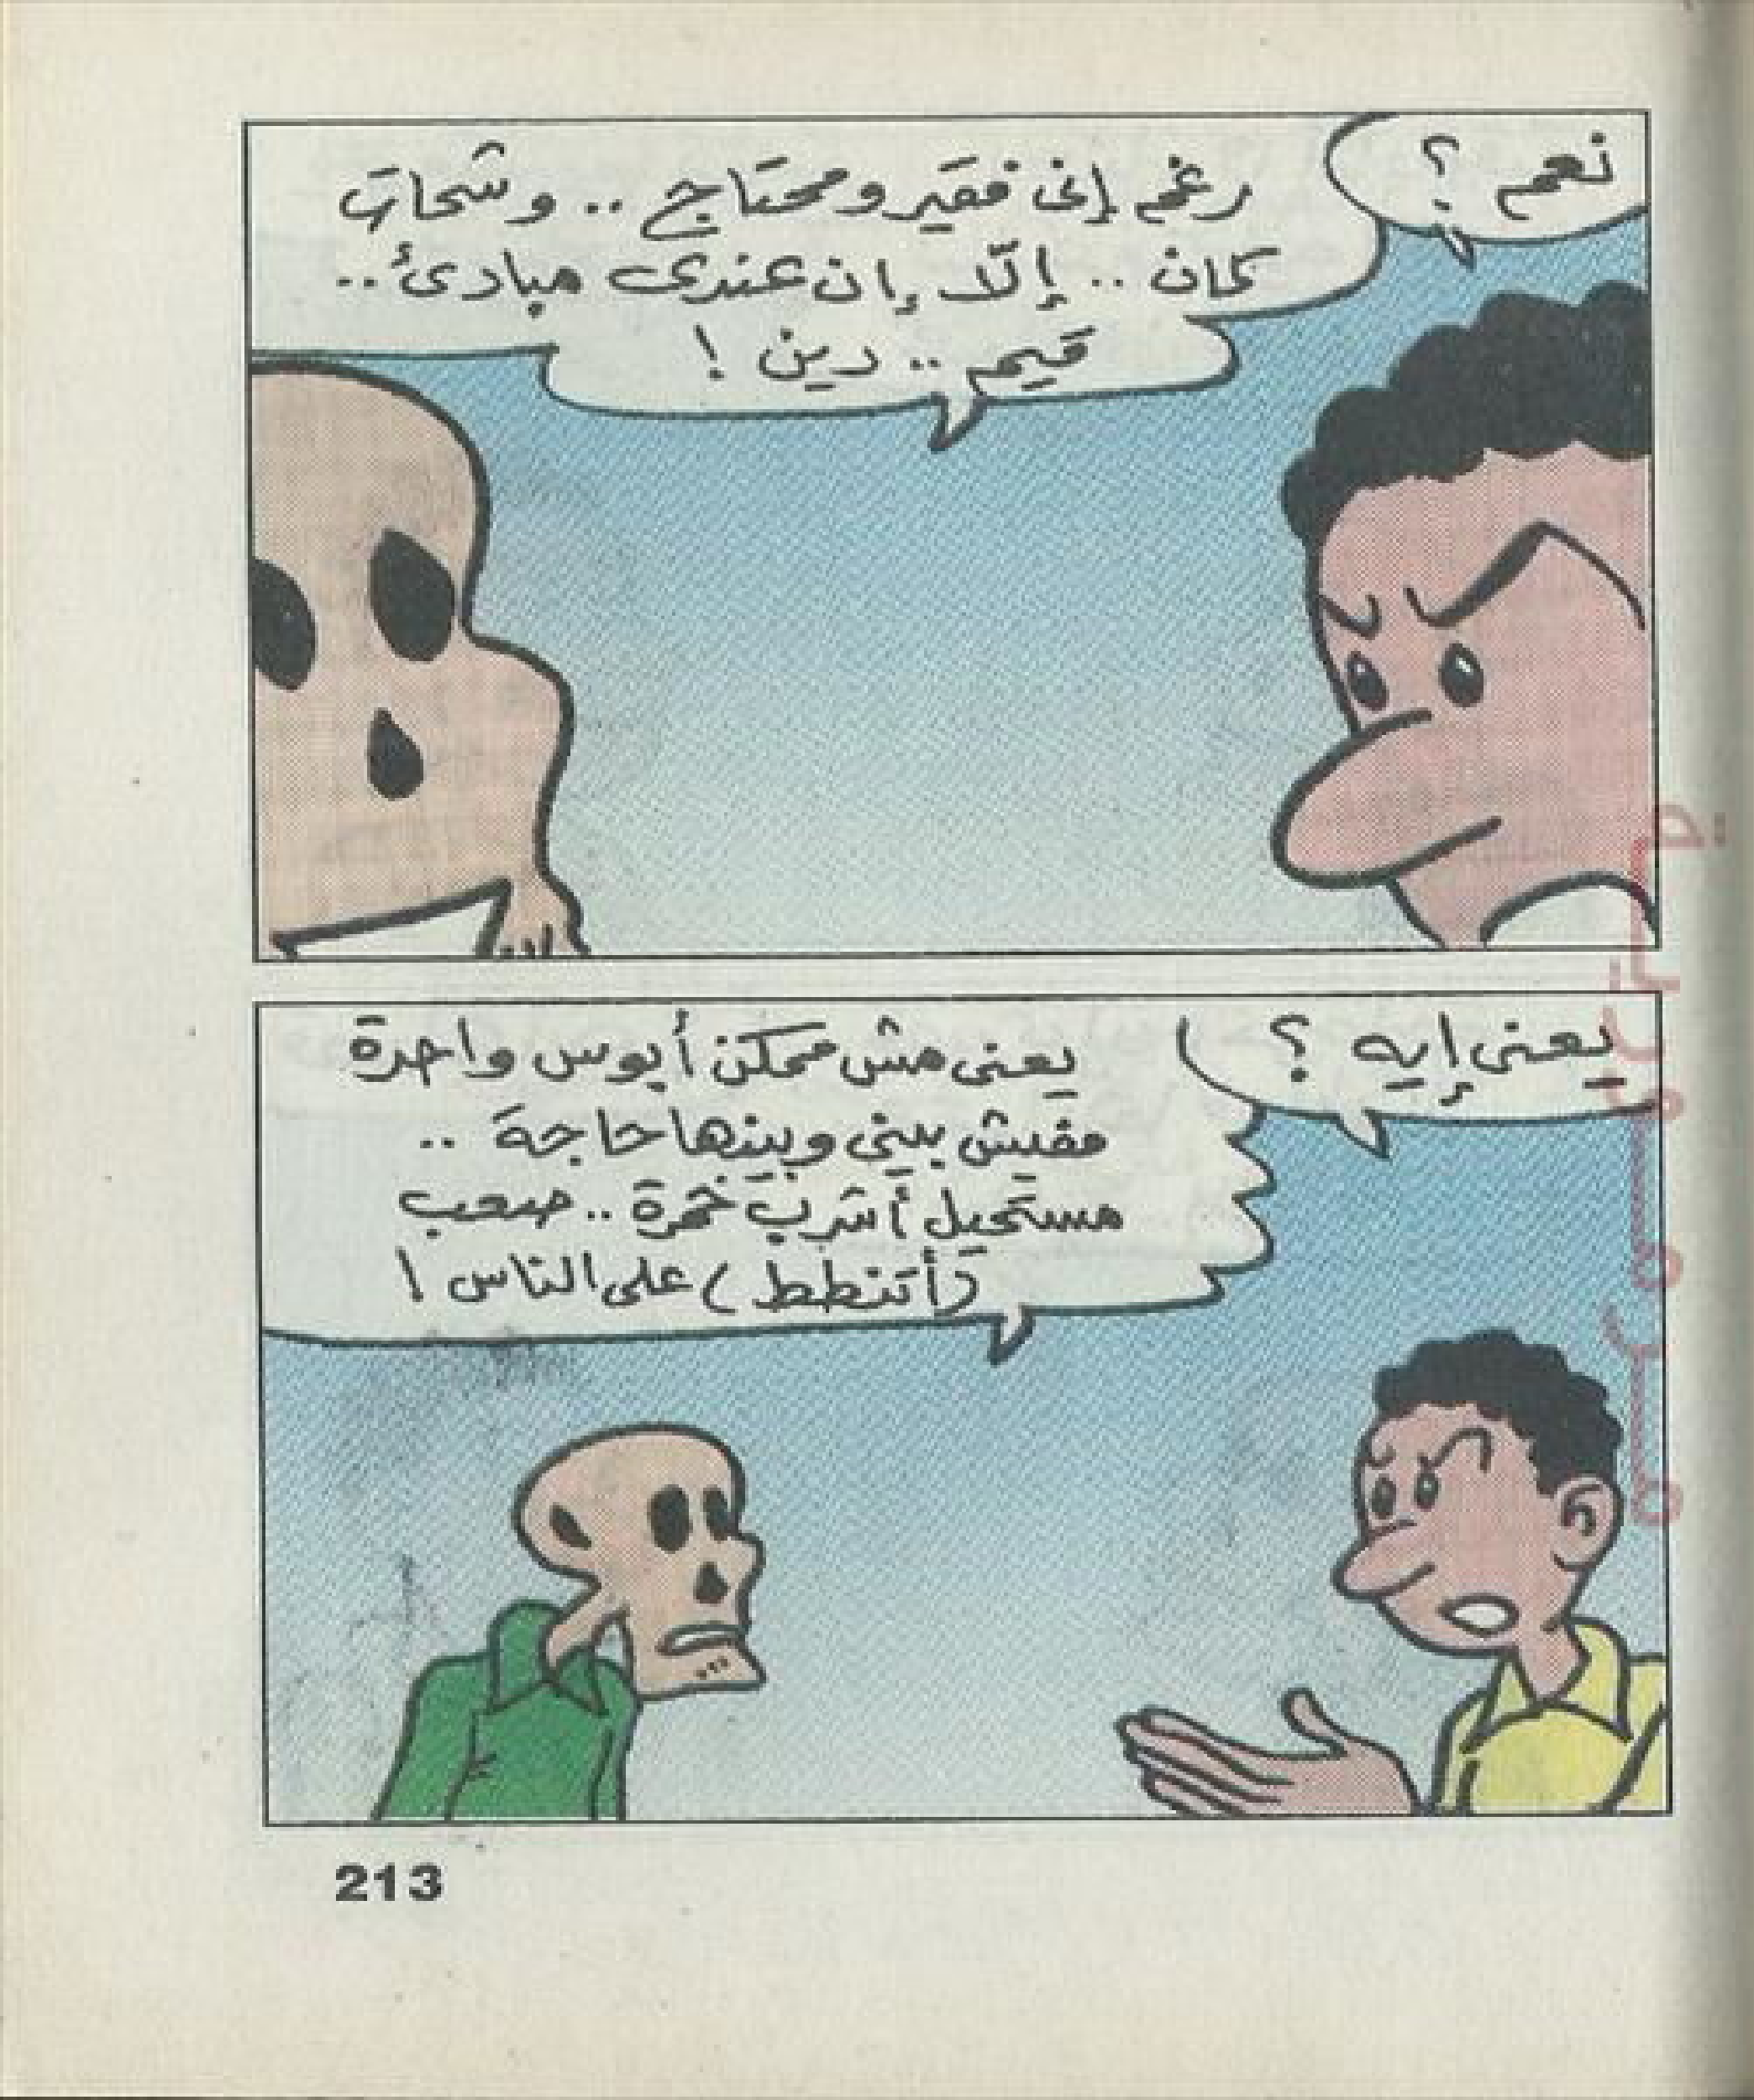 نعم ؟
رغم إنى فقير ومحتاج .. وشحات
كمان .. إلّا إن عندى مبادئ ..
قيم .. دين !
يعنى إيه ؟
يعنى مش ممكن أبوس واحدة
مفيش بينى وبينها حاجة ..
مستحيل أشرب خمرة .. صعب
(أتنطط) على الناس !
213